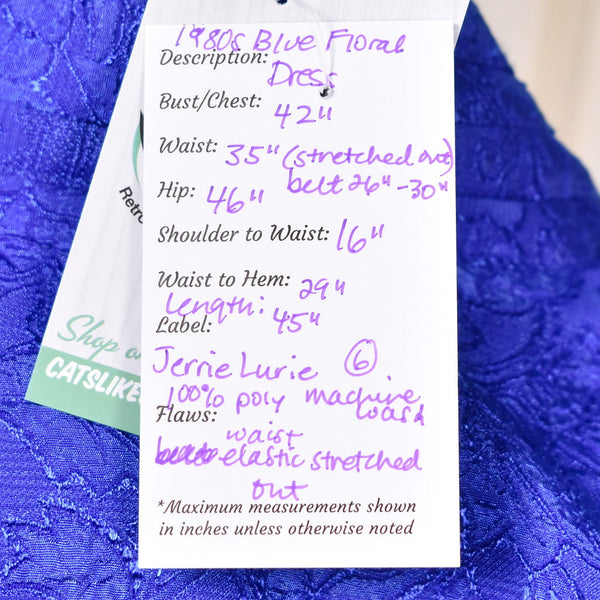 1980s Blue Floral
Description:
Dress
Bust/Chest: 42"
Waist: 35" (stretched out)
belt 26"-30"
Hip: 46"
Shoulder to Waist: 16"
Waist to Hem: 29"
Length: 45"
Label:
Jerrie Lurie 6
100% poly machine wash
Flaws:
waist
elastic stretched
out
*Maximum measurements shown
in inches unless otherwise noted
Retro
Shop o
CATSLIKE